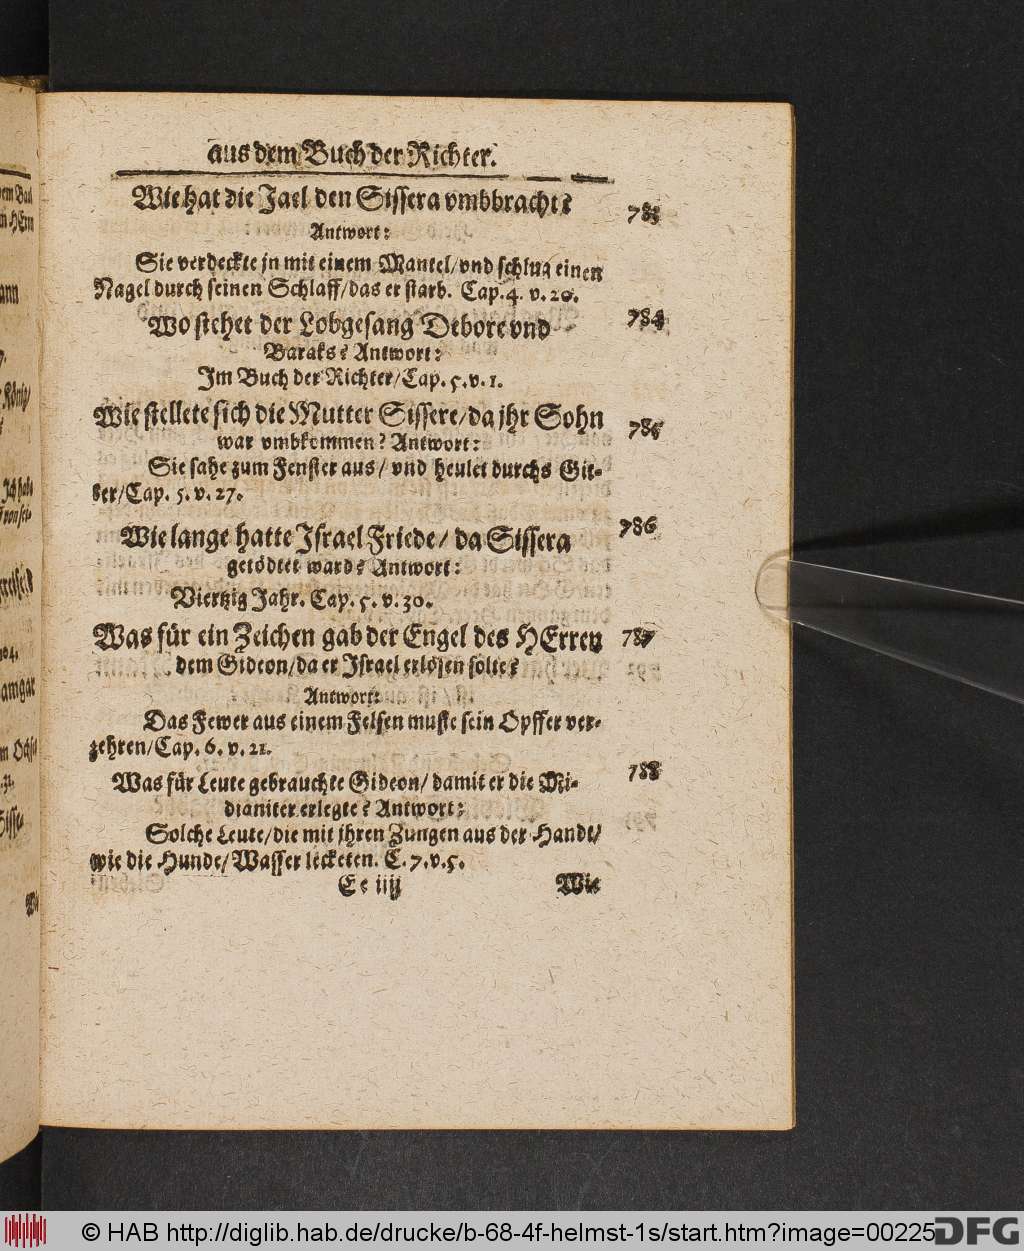 aus dem Buch der Richter.
Wie hat die Jael den Sissera vmbbracht? 783
Antwort:
Sie verdeckte jn mit einem Mantel/vnd schlug einen
Nagel durch seinen Schlaff/das er starb. Cap.4. v.20.
Wo stehet der Lobgesang Debore vnd 784
Baraks? Antwort:
Im Buch der Richter/Cap. 5.v.1.
Wie stellete sich die Mutter Sissere/da jhr Sohn 785
war vmbkommen? Antwort:
Sie sahe zum Fenster aus/ vnd heulet durchs Git-
ter/Cap. 5. v. 27.
Wie lange hatte Israel Friede/ da Sissera 786
getödtet ward? Antwort:
Viertzig Jahr. Cap. 5. v. 30.
Was für ein Zeichen gab der Engel des HErren 787
dem Gideon/da er Israel erlösen solte?
Antwort:
Das Fewer aus einem Felsen muste sein Opffer ver-
zehren/Cap. 6. v. 21.
Was für Leute gebrauchte Gideon/ damit er die Mi- 788
dianiter erlegte? Antwort:
Solche Leute/die mit jhren Zungen aus der Handt/
wie die Hunde/Wasser lecketen. C. 7.v.5.
Ee iiij Wie
© HAB http://diglib.hab.de/drucke/b-68-4f-helmst-1s/start.htm?image=00225
DFG